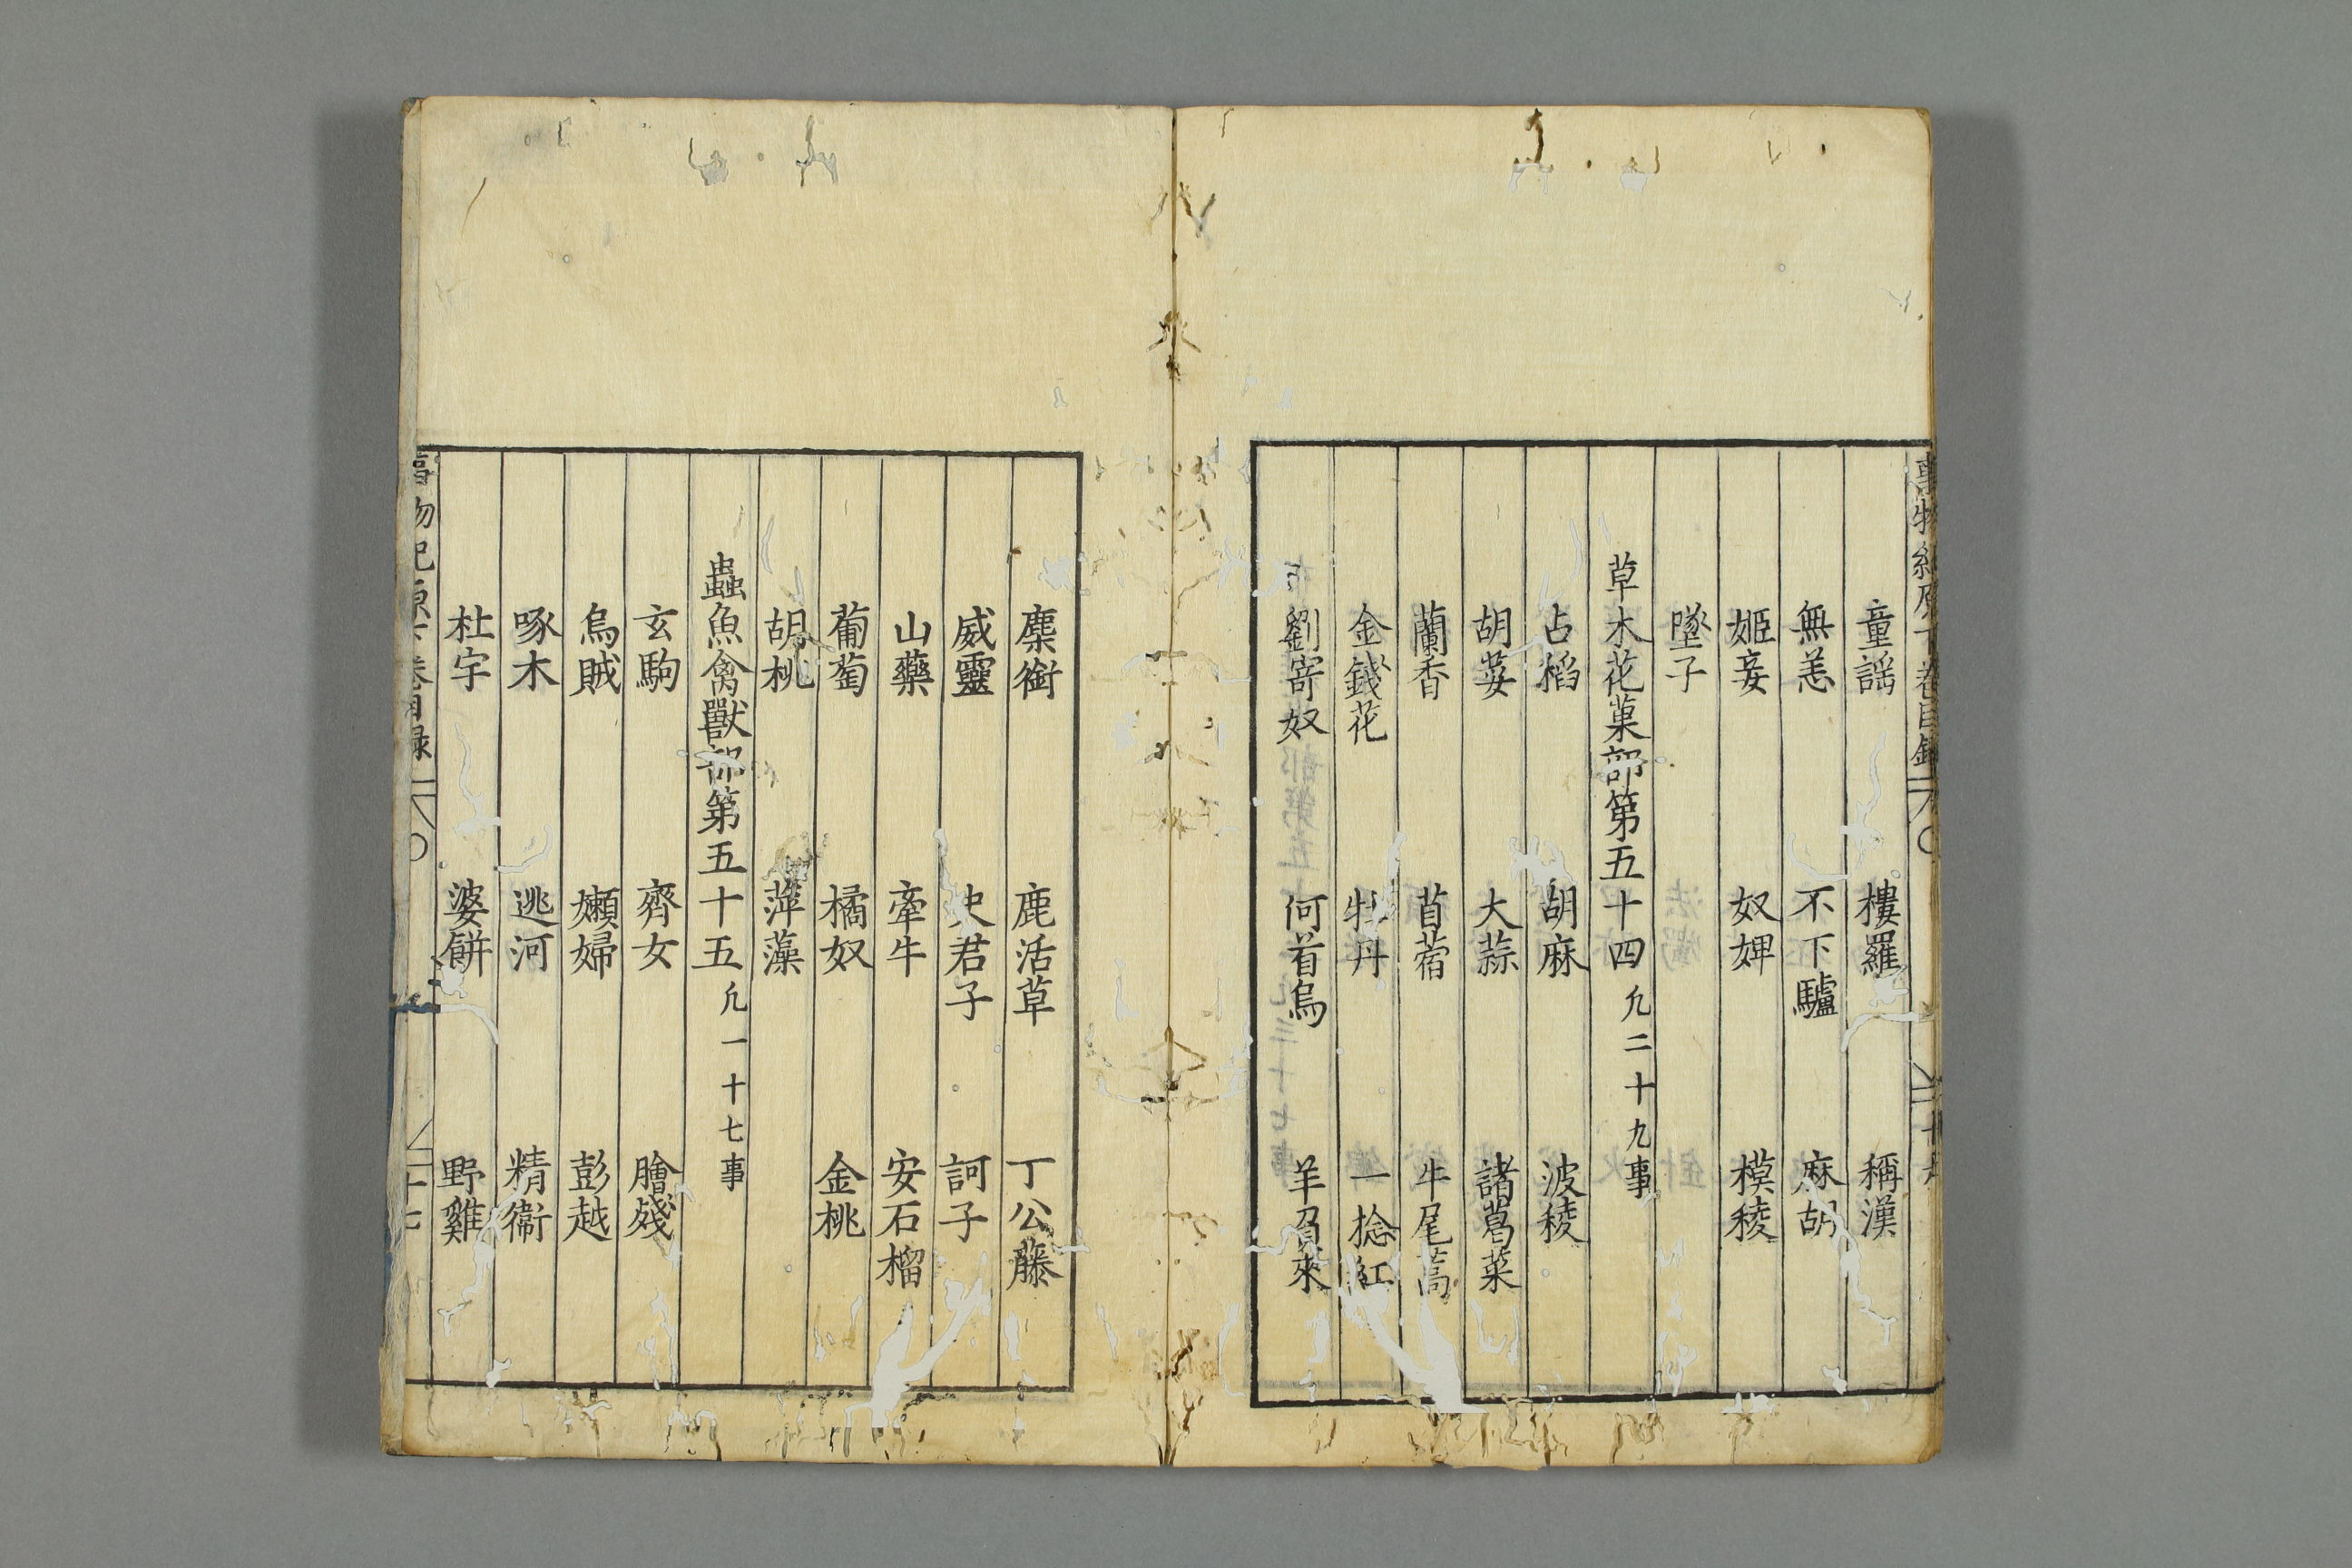 童謡 樓羅 稱漢
無恙 不下驢 麻胡
姬妾 奴婢 模稜
墜子
草木花菓部第五十四 凢二十九事
占稻 胡麻 波稜
胡荽 大蒜 諸葛菜
蘭香 苜蓿 牛尾蒿
金錢花 牡丹 一捻紅
劉寄奴 何首烏 羊負來
麋銜 鹿活草 丁公藤
威靈 史君子 訶子
山藥 牽牛 安石榴
葡萄 橘奴 金桃
胡桃 萍藻
蟲魚禽獸部第五十五 凢一十七事
玄駒 齊女 膾殘
烏賊 嬾婦 彭越
啄木 逃河 精衞
杜宇 婆餅 野雞
事物紀原十卷目録 十七